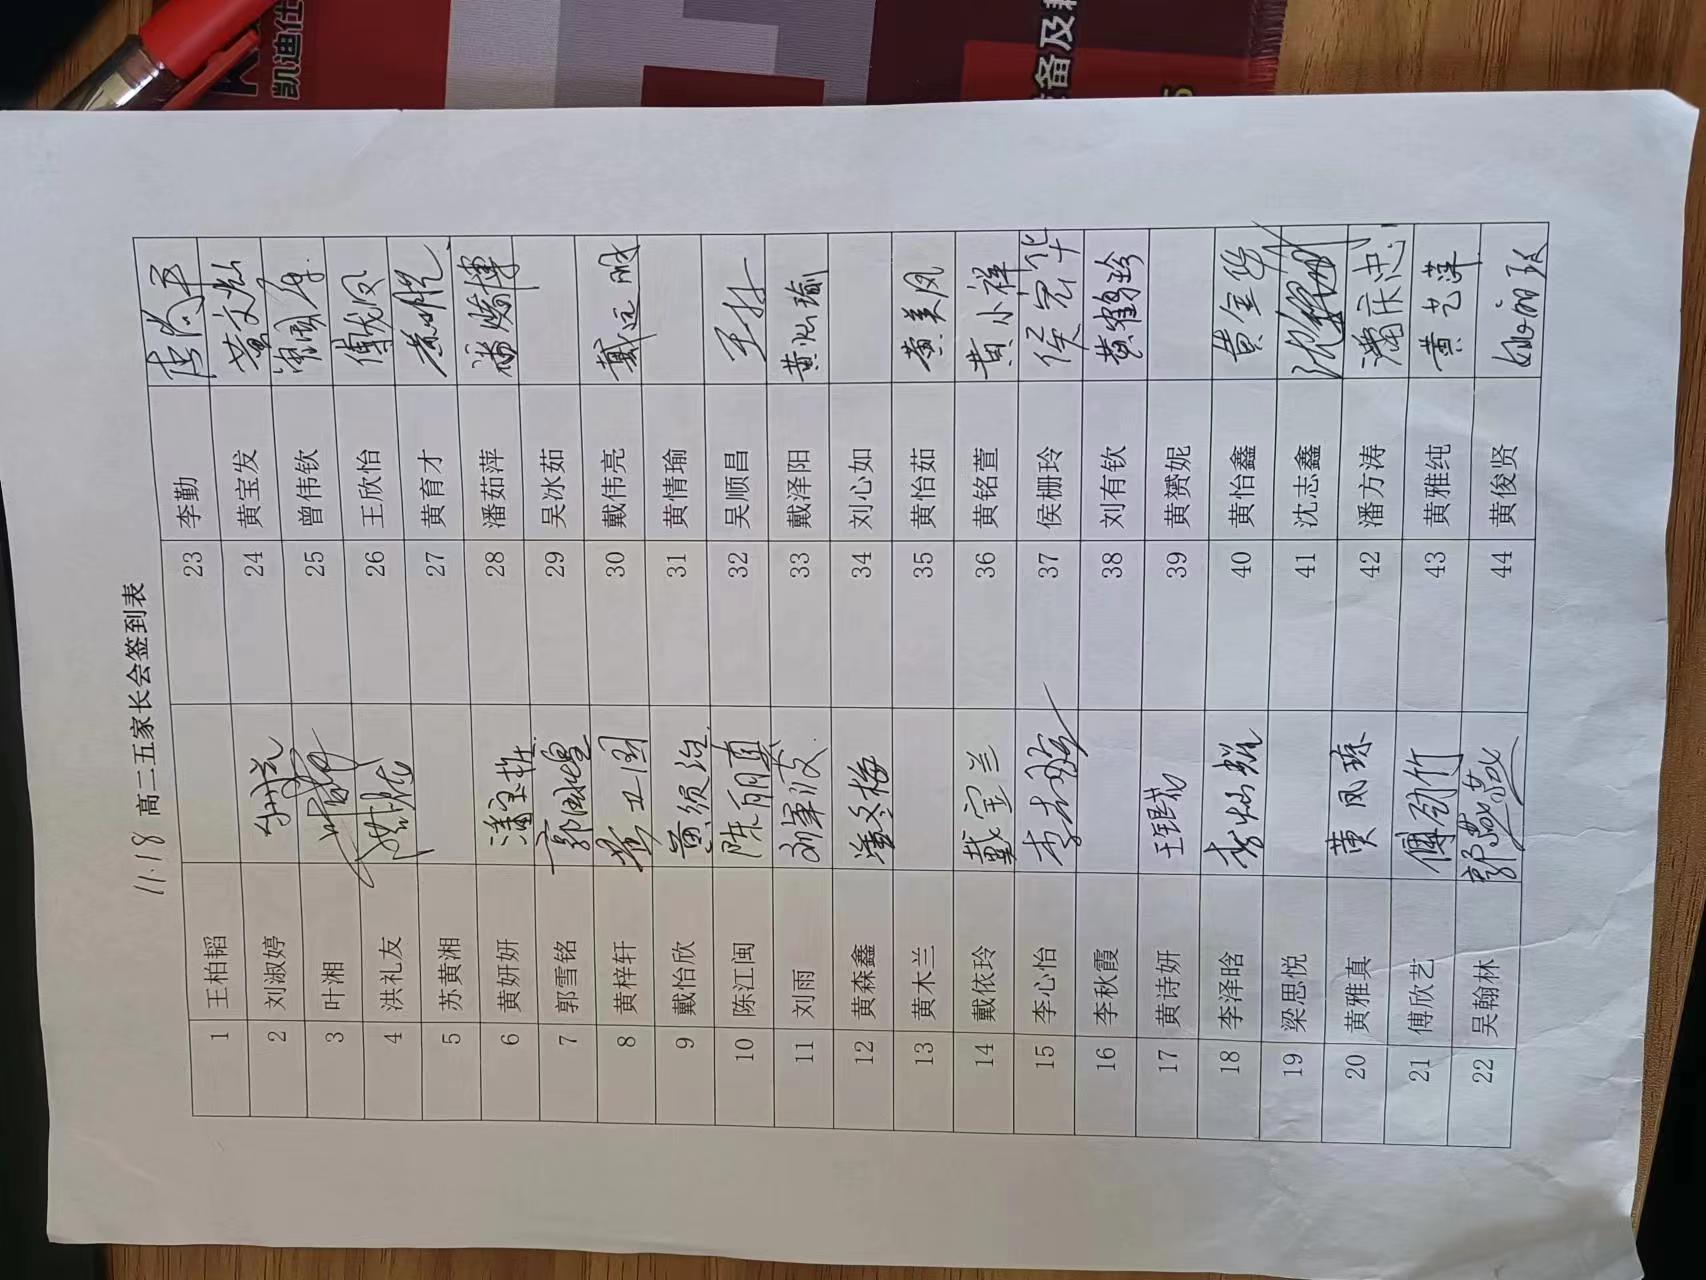 凯迪仕
备及
11.18 高二五家长会签到表
1 王柏韬 23 李勤
2 刘淑婷 24 黄宝发 黄文灿
3 叶湘 25 曾伟钦
4 洪礼友 26 王欣怡 傅战凤
5 苏黄湘 27 黄育才
6 黄妍妍 潘宝哲 28 潘茹萍
7 郭雪铭 29 吴冰茹
8 黄梓轩 黄卫国 30 戴伟亮 戴远成
9 戴怡欣 黄须治 31 黄情瑜
10 陈江闽 陈丽真 32 吴顺昌
11 刘雨 33 戴泽阳 黄灿瑜
12 黄森鑫 潘冬梅 34 刘心如
13 黄木兰 35 黄怡茹 黄美凤
14 戴依玲 戴宝兰 36 黄铭萱 黄小祥
15 李心怡 37 侯栅玲 侯宏华
16 李秋霞 38 刘有钦 黄鹤玲
17 黄诗妍 39 黄赟妮
18 李泽晗 李灿辉 40 黄怡鑫 黄金华
19 梁思悦 41 沈志鑫
20 黄雅真 黄凤琼 42 潘方涛 潘庆忠
21 傅欣艺 傅劲竹 43 黄雅纯 黄艺萍
22 吴翰林 郭燕燕 44 黄俊贤 姚丽玫